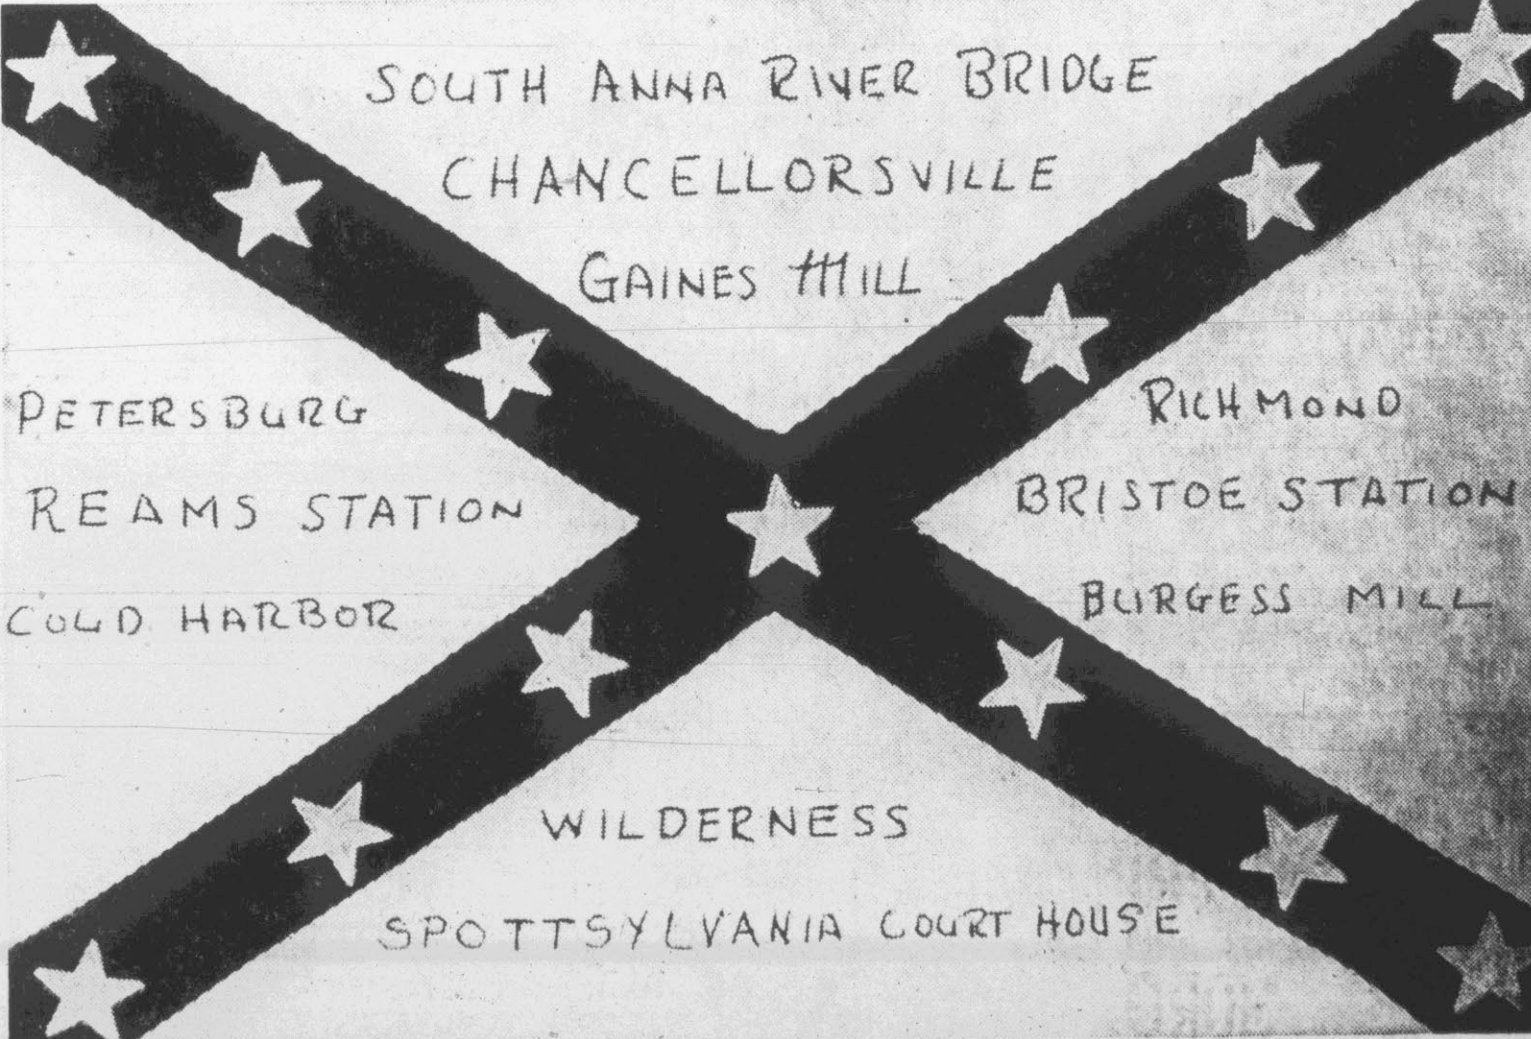 SOUTH ANNA RIVER BRIDGE
CHANCELLORSVILLE
GAINES MILL
PETERSBURG
REAMS STATION
COLD HARBOR
RICHMOND
BRISTOE STATION
BURGESS MILL
WILDERNESS
SPOTTSYLVANIA COURT HOUSE